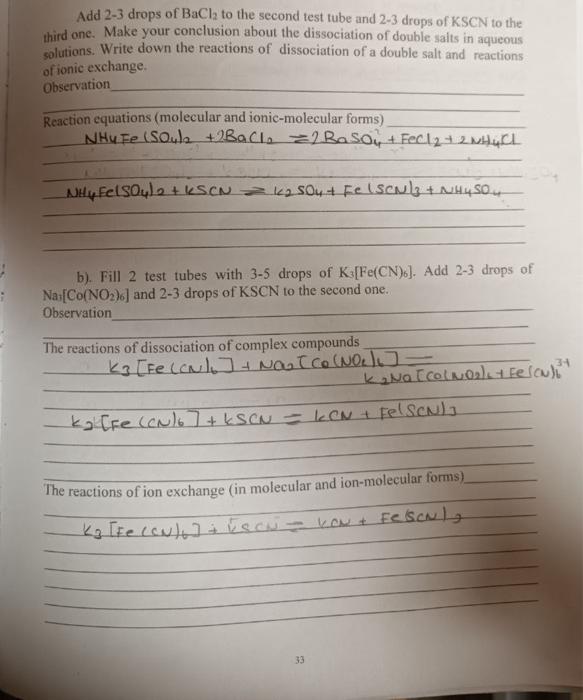 Add 2-3 drops of BaCl₂ to the second test tube and 2-3 drops of KSCN to the
third one. Make your conclusion about the dissociation of double salts in aqueous
solutions. Write down the reactions of dissociation of a double salt and reactions
of ionic exchange.
Observation
Reaction equations (molecular and ionic-molecular forms)
NH4Fe(SO4)2 + 2BaCl2 = 2BaSO4 + FeCl2 + 2NH4Cl
NH4Fe(SO4)2 + KSCN = K2SO4 + Fe(SCN)3 + NH4SO4
b). Fill 2 test tubes with 3-5 drops of K₃[Fe(CN)₆]. Add 2-3 drops of
Na₃[Co(NO₂)₆] and 2-3 drops of KSCN to the second one.
Observation
The reactions of dissociation of complex compounds
K3[Fe(CN)6] + Na3[Co(NO2)6] =
K2Na[Co(NO2)6 + Fe(CN)6³⁺
K3[Fe(CN)6] + KSCN = KCN + Fe(SCN)3
The reactions of ion exchange (in molecular and ion-molecular forms)
K3[Fe(CN)6] + KSCN = KCN + Fe(SCN)3
33